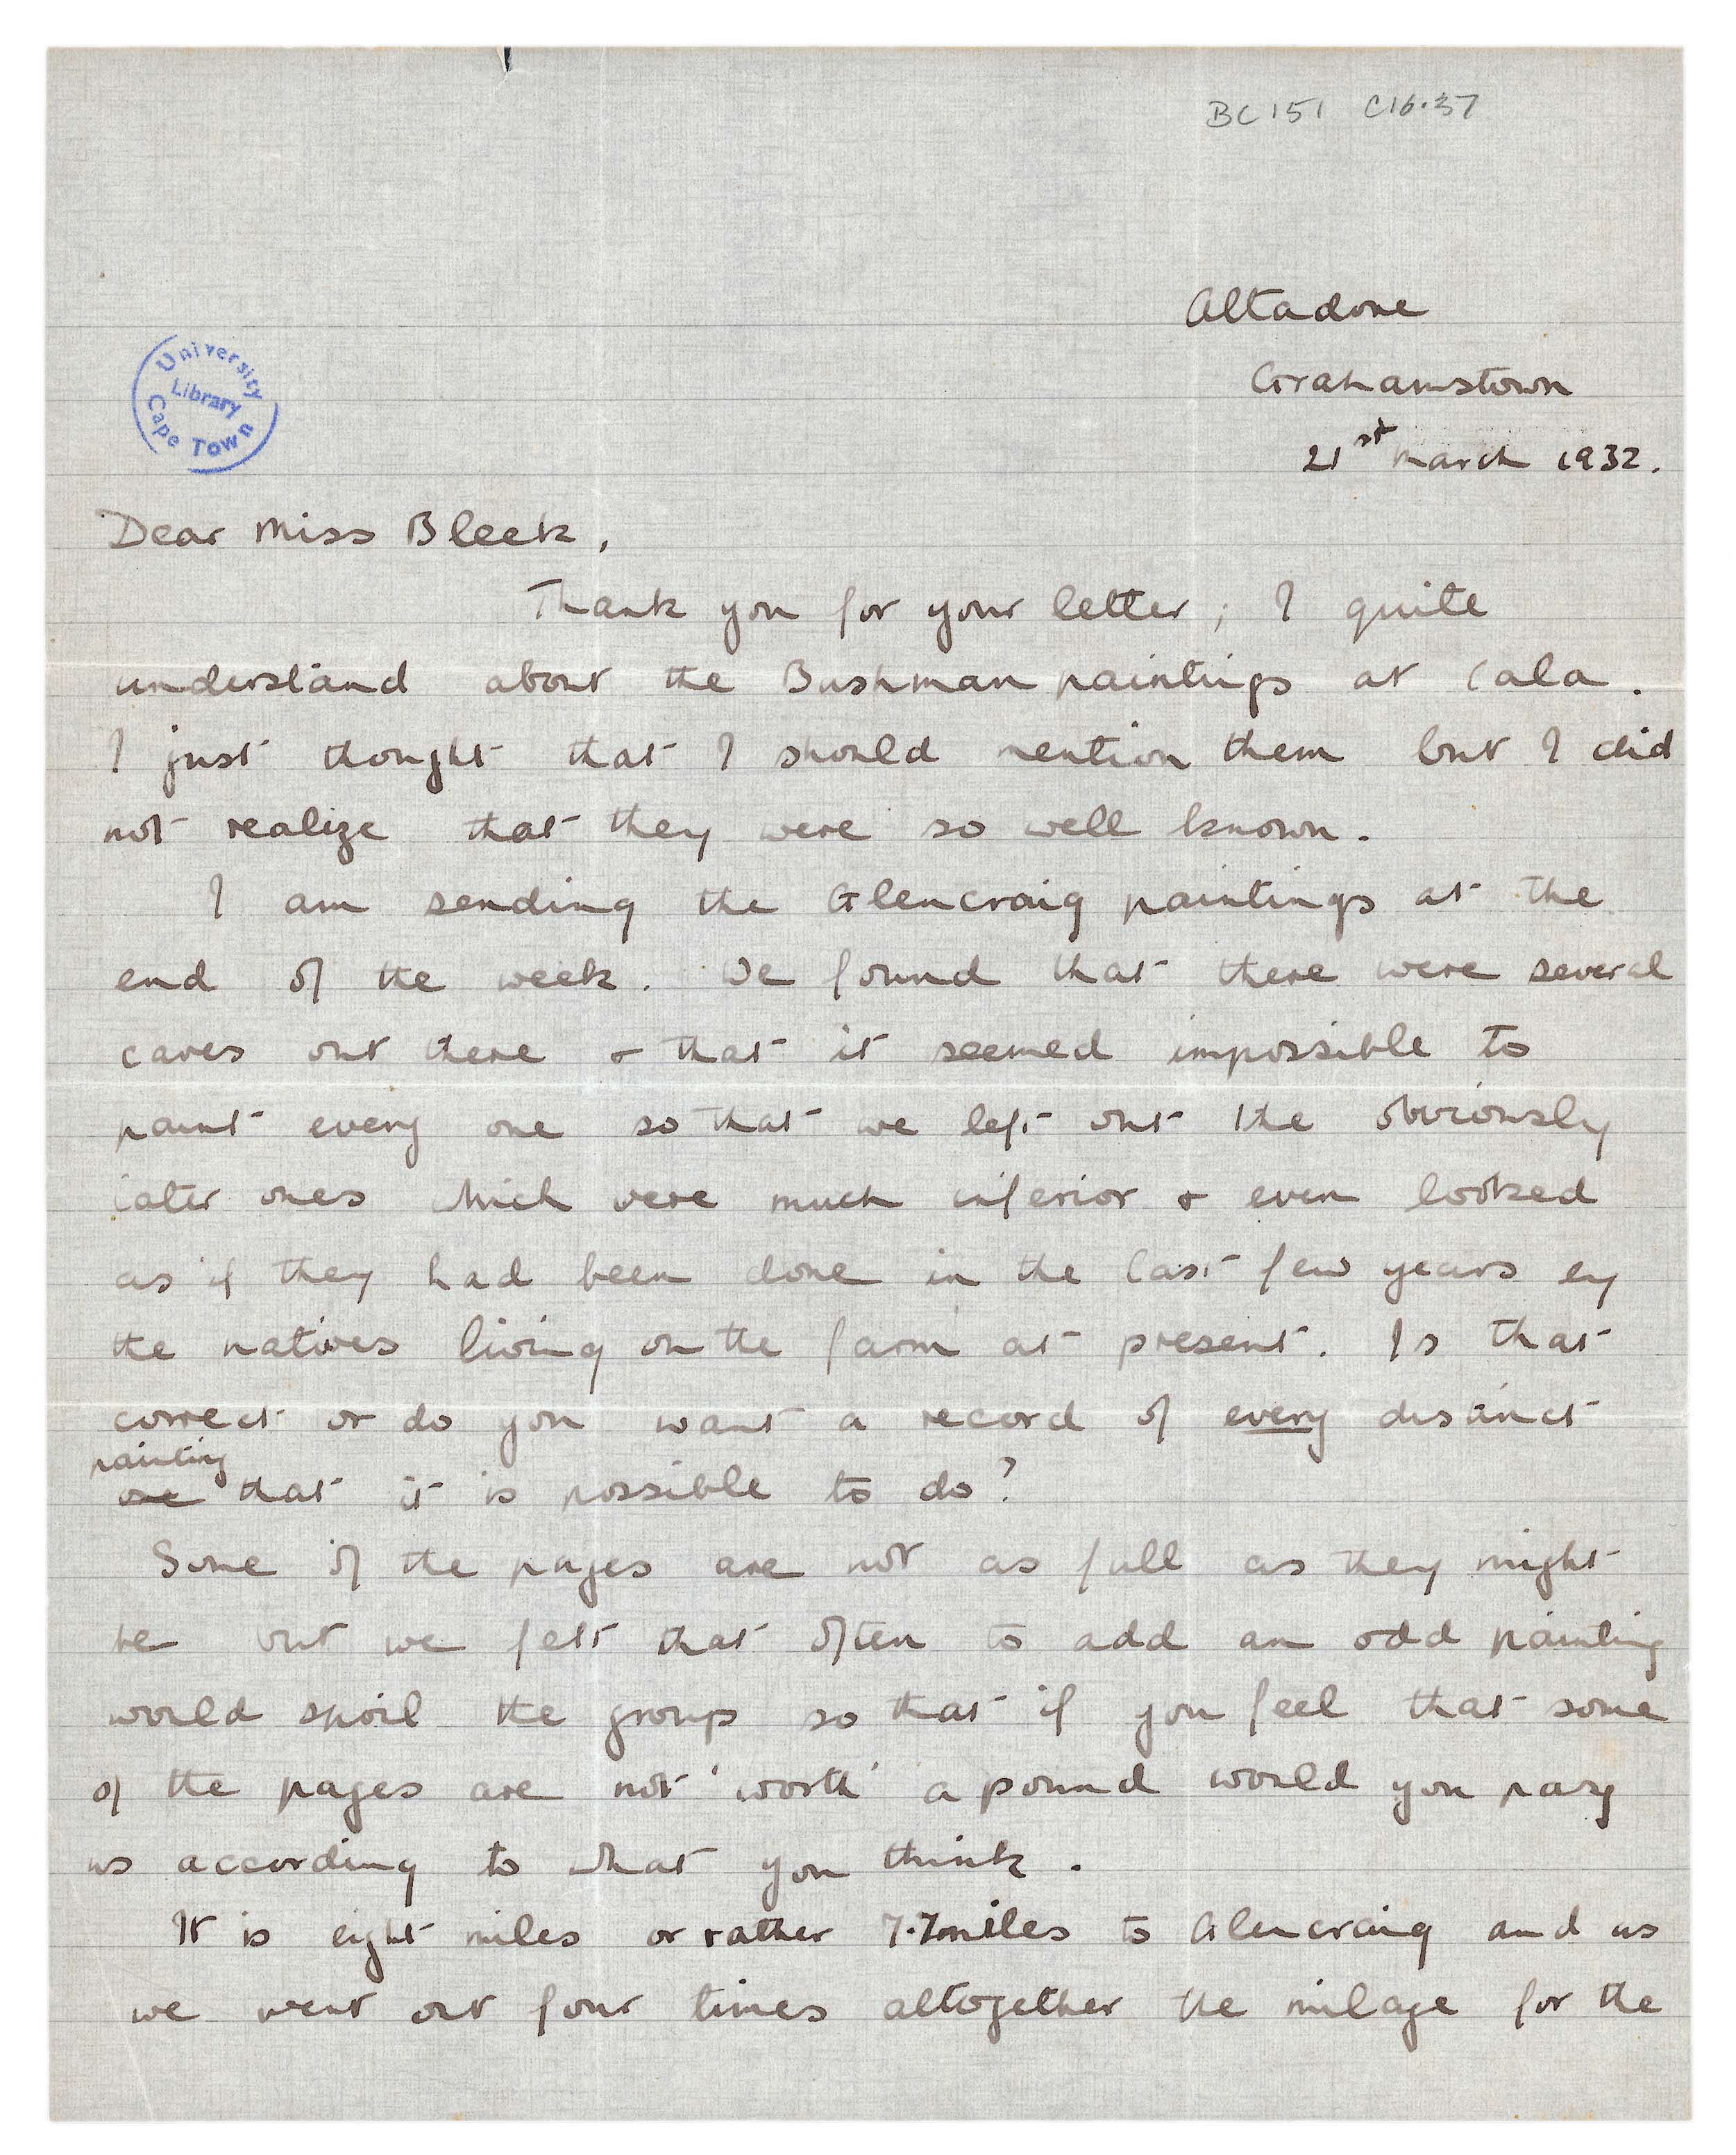 BC 151 C16.37
Altadore
Grahamstown
21st March 1932.
University
Library
Cape Town
Dear Miss Bleek,
Thank you for your letter; I quite
understand about the Bushman paintings at Cala.
I just thought that I should mention them but I did
not realize that they were so well known.
I am sending the Glencraig paintings at the
end of the week. We found that there were several
caves out there & that it seemed impossible to
paint every one so that we left out the obviously
later ones which were much inferior & even looked
as if they had been done in the last few years by
the natives living on the farm at present. Is that
correct or do you want a record of every distinct
painting
one that it is possible to do?
Some of the pages are not as full as they might
be but we felt that often to add an odd painting
would spoil the group so that if you feel that some
of the pages are not 'worth' a pound would you pay
us according to what you think.
It is eight miles or rather 7.7 miles to Glencraig and as
we went out four times altogether the milage for the